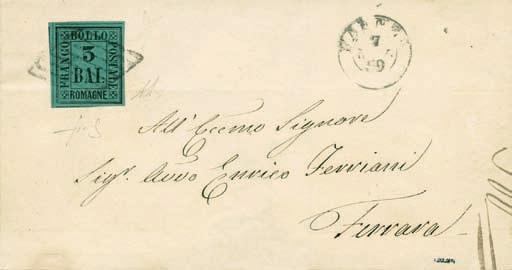 BOLLO
FRANCO
POSTALE
3
BAI
ROMAGNE
7
59
All' Eccmo Signore
Sigr. Avvo Enrico Ferriani
Ferrara